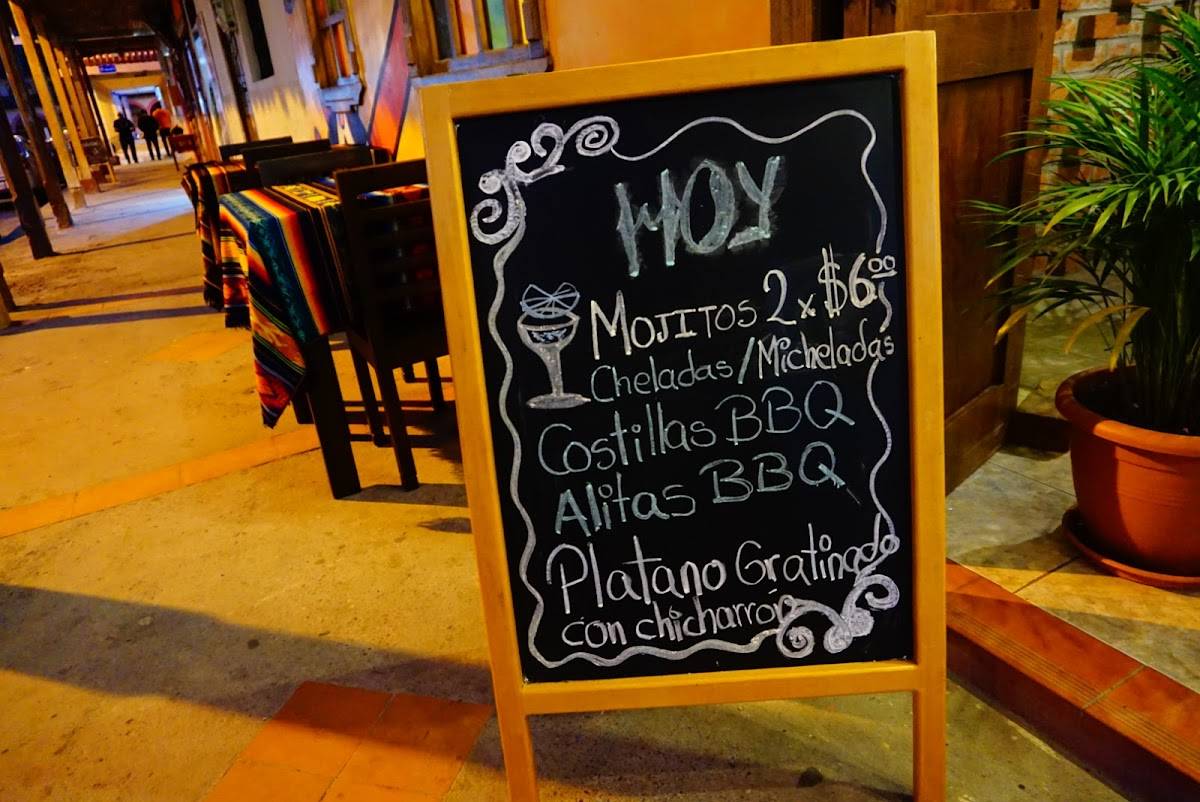 HOY
MOJITOS 2x $6.00
Cheladas/Micheladas
Costillas BBQ
Alitas BBQ
Platano Gratinado
con chicharrón